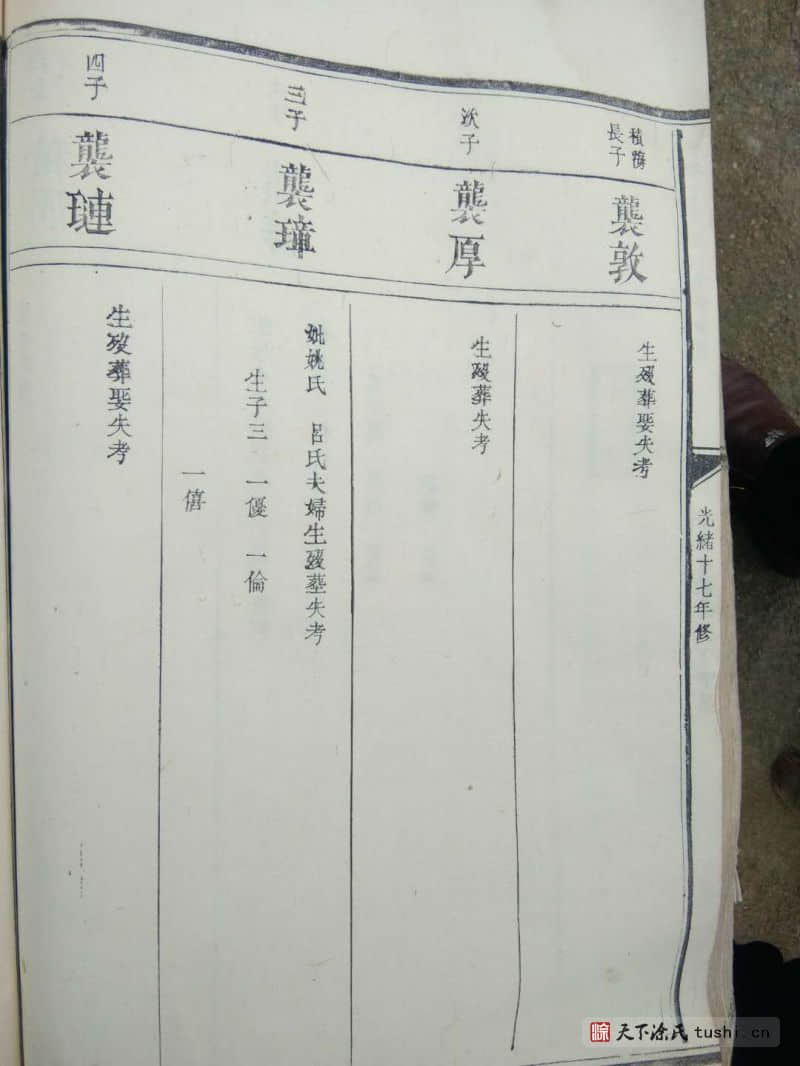 光緒十七年修
積鶺
長子
襲敦
生歿葬娶失考
次子
襲厚
生歿葬失考
三子
襲璋
妣姚氏 呂氏夫婦生歿塟失考
生子三 一優 一倫
一僖
四子
襲璉
生歿葬娶失考
天下涂氏 tushi.cn